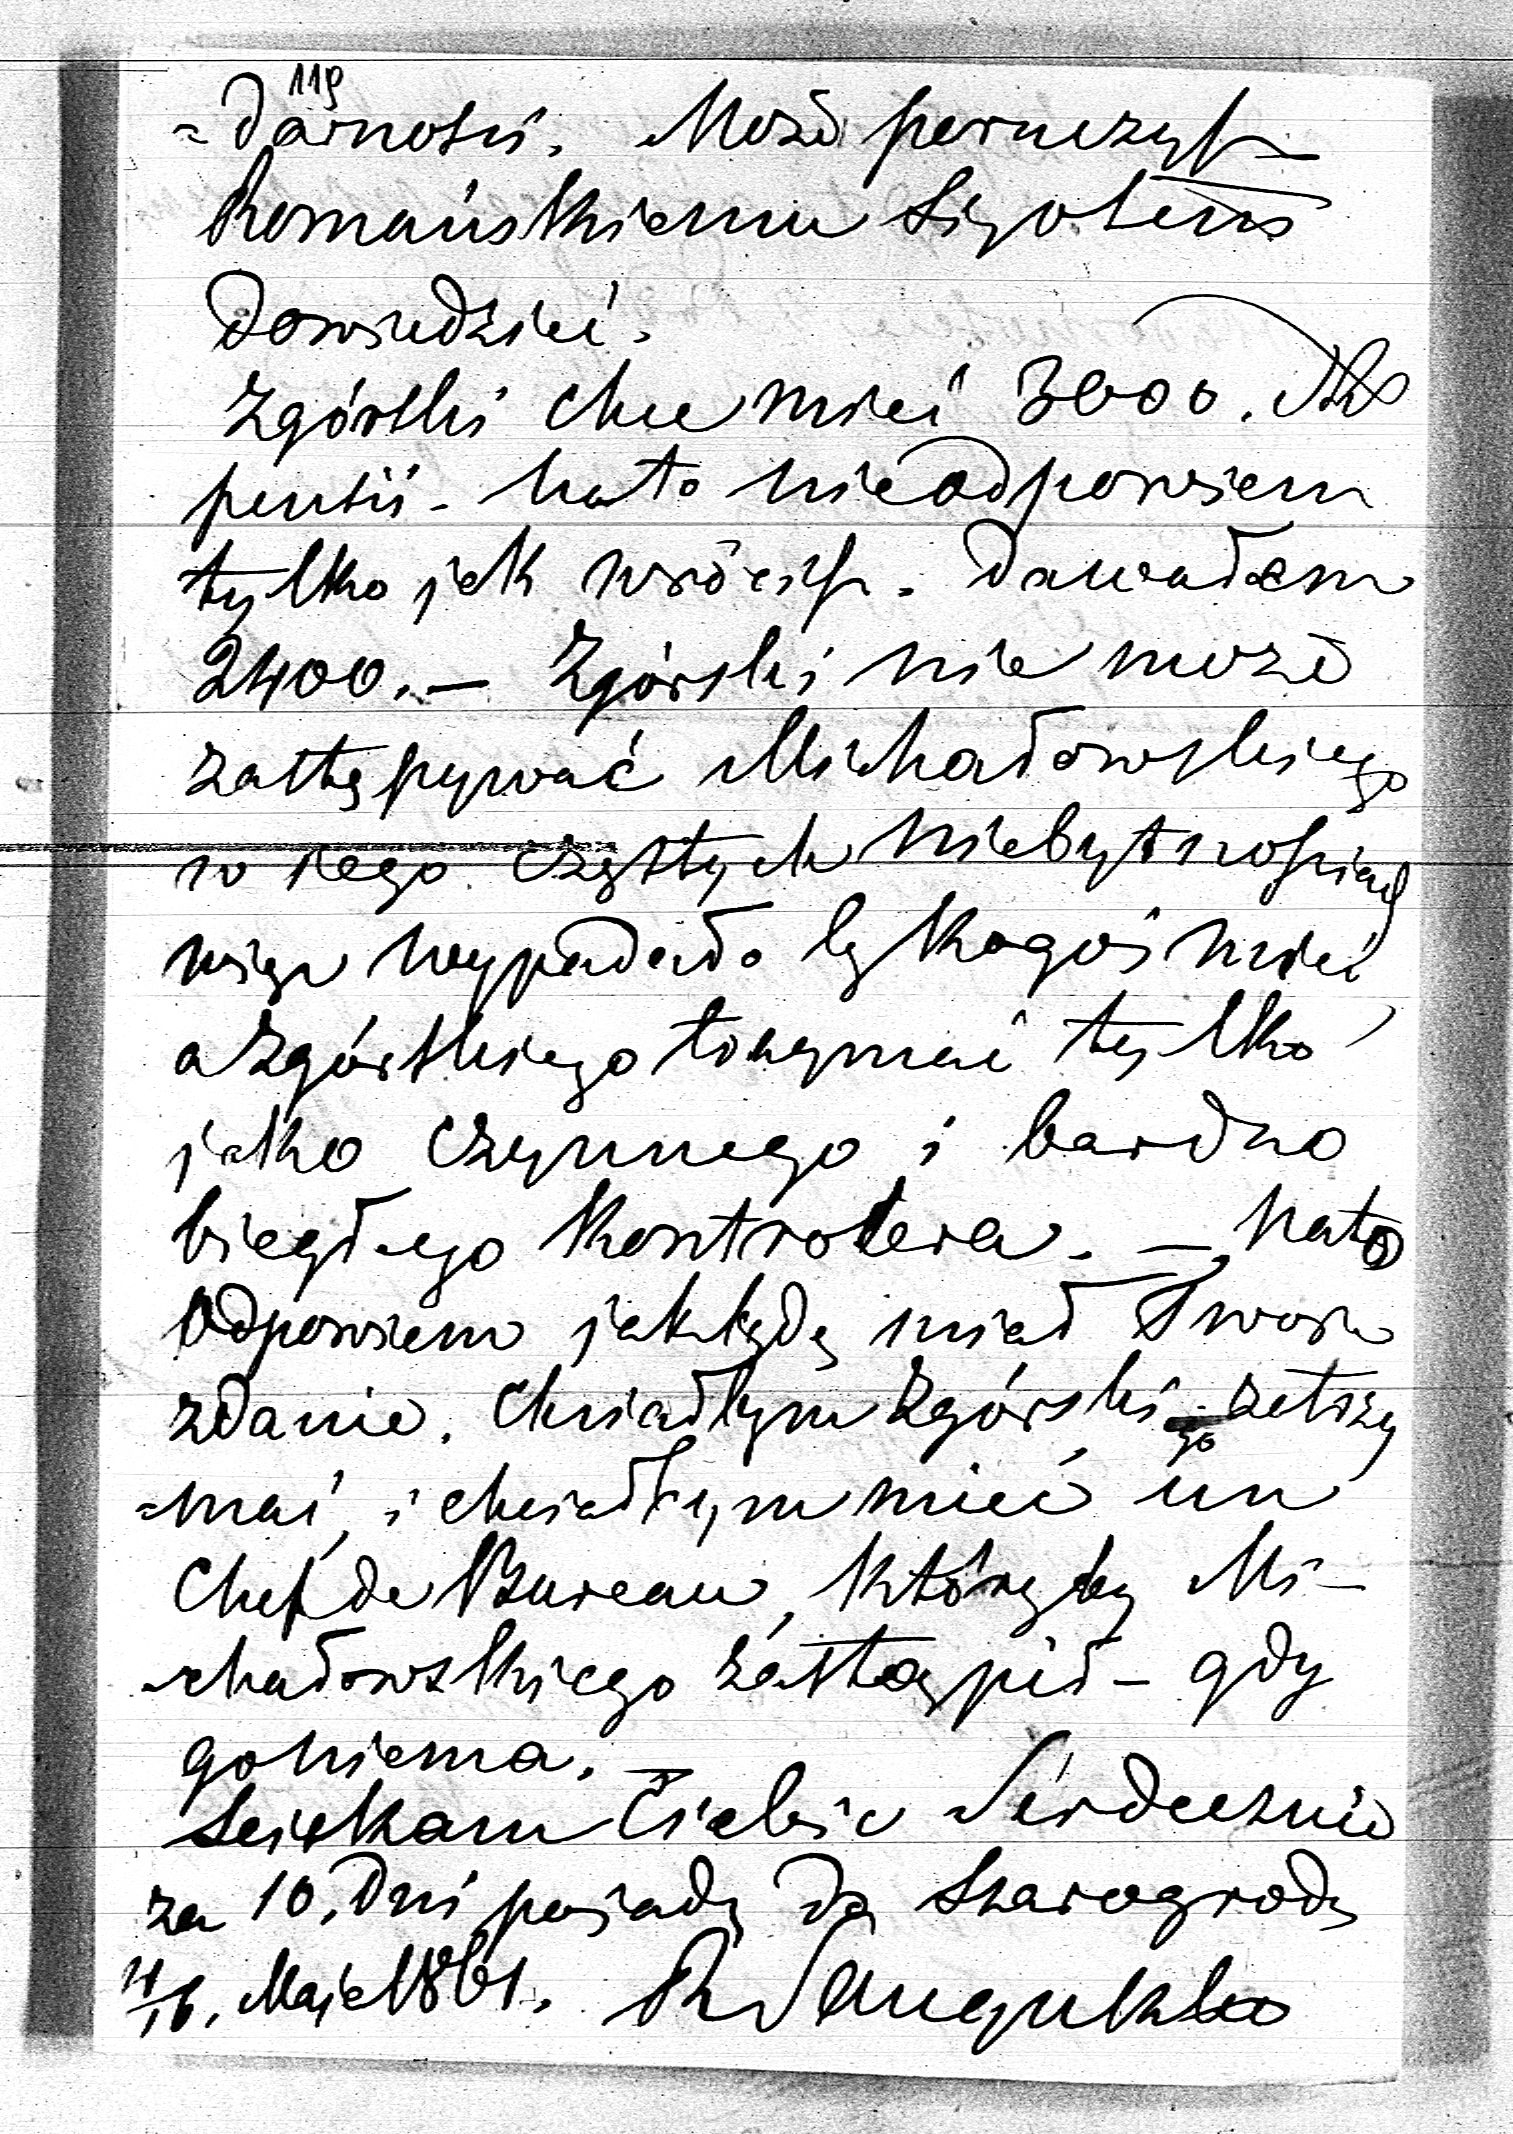 119
=darnosti. Może poruczysz
Romańskiemu się o tem
dowiedzieć.
Zgórski chce mieć 3000. Rb
pensii - na to nieodpowiem
tylko jak wrócisz. Dawałem
2400. — Zgórski nie może
zastępywać Michałowskiego
w jego częstych niebytnościach
więc wypadało by kogoś mieć
a Zgórskiego trzymać tylko
jako czynnego i bardzo
biegłego Kontrolera. — na to
odpowiem jak będę miał Twoje
zdanie. Chciałbym Zgórskiego zatrzy
=mać, i chciałbym mieć un
Chef de Bureau, któryby Mi-
chałowskiego zastąpił - gdy
go niema. —
Ściskam Ciebie Serdecznie
za 10. dni pojadę do Szarogrodu
4/16. Maja 1861. R Sanguszko